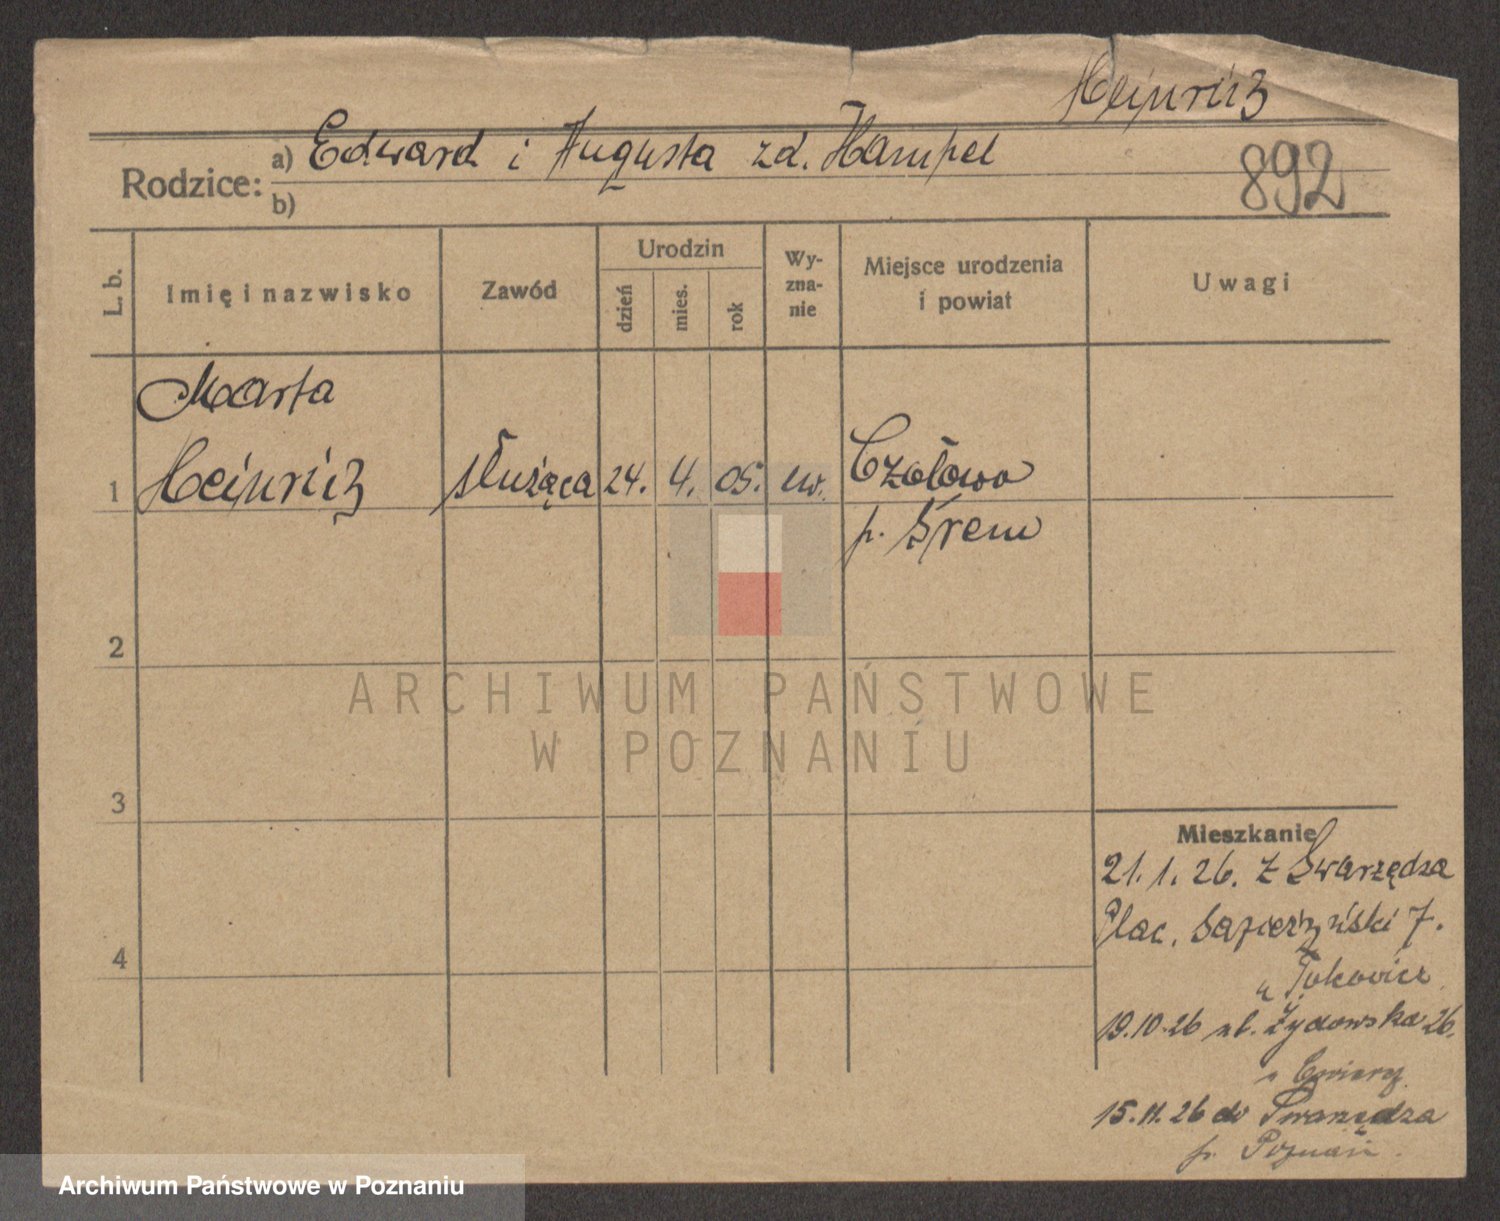 Heinrich
Rodzice: a) Edward i Augusta zd. Hampel
b)
892
L. b.
Imię i nazwisko
Zawód
Urodzin
dzień
mies.
rok
Wy-
zna-
nie
Miejsce urodzenia
i powiat
Uwagi
Marta
1 Heinrich służąca 24. 4. 05. ew. Czołowo
p. Śrem
2
3
4
ARCHIWUM PAŃSTWOWE
W POZNANIU
Mieszkanie
21.1.26. z Swarzędza
Plac. Sapieżyński 7.
u
19.10.26 ul. Żydowska 26.
15.11.26 do Swarzędza
p. Poznań.
Archiwum Państwowe w Poznaniu